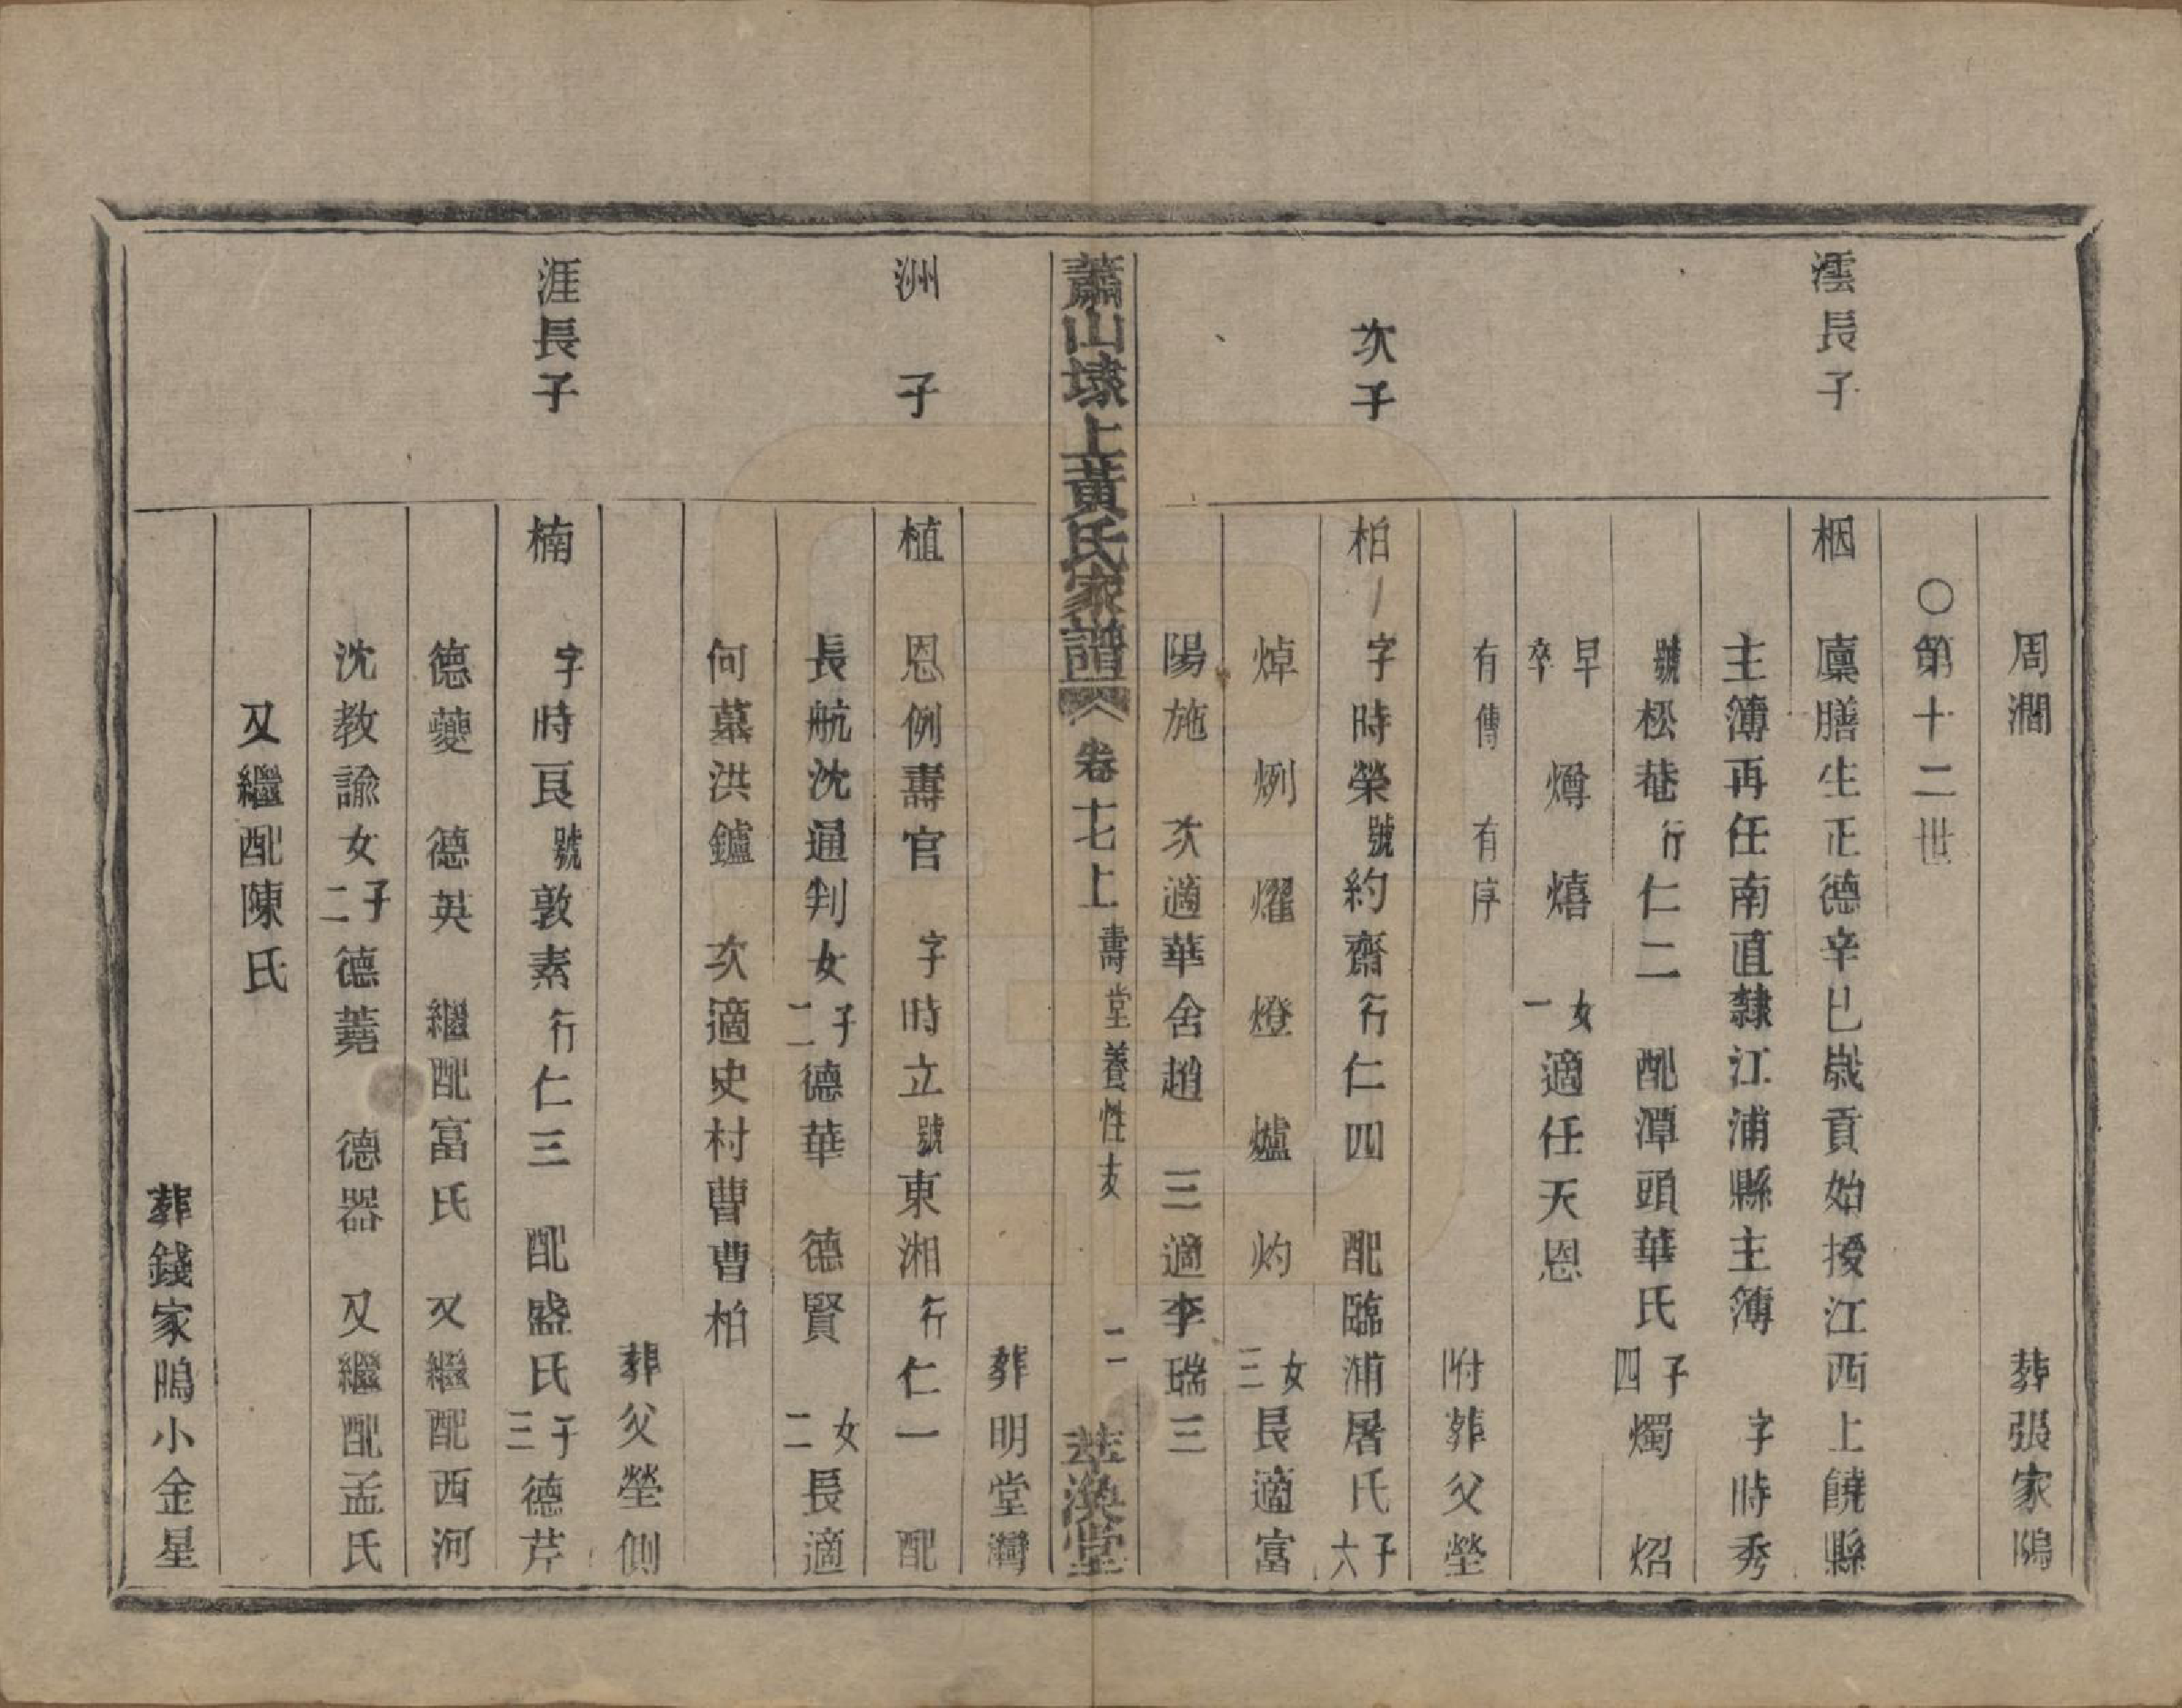 周澗　葬張家鴋
○第十二世
澐長子　梱　廩膳生正德辛巳歲貢始授江西上饒縣
主簿再任南直隸江浦縣主簿　字時秀
號松菴行仁二　配潭頭華氏子四燭　炤
早卒　燇　熺　女一適任天恩
有傳　有序　附葬父塋
次子　柏　字時榮號約齋行仁四　配臨浦屠氏子六
焯　烱　燿　燈　爐　灼　女三長適富
陽施　次適華舍趙　三適李瑞三
蕭山埭上黃氏家譜　卷十七上　壽堂養性支　二　萃渙堂
葬明堂灣
洲子　植　恩例壽官　字時立號東湘行仁一　配
長航沈通判女子二德華　德賢　女二長適
何墓洪鑪　次適史村曹曹柏
葬父塋側
涯長子　楠　字時良號敦素行仁三　配盛氏子三德芹
德夔　德英　繼配富氏　又繼配西河
沈教諭女子二德蕘　德器　又繼配孟氏
又繼配陳氏
葬錢家鴋小金星